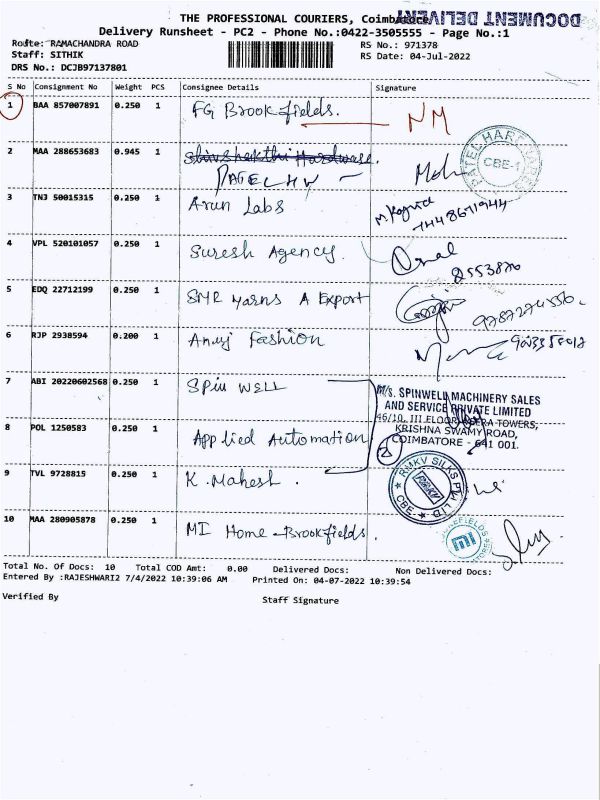 THE PROFESSIONAL COURIERS, Coimbatore
DOCUMENT DELIVERY
Delivery Runsheet - PC2 - Phone No.:0422-3505555 - Page No.:1
Route: RAMACHANDRA ROAD
RS No.: 971378
Staff: SITHIK
RS Date: 04-Jul-2022
DRS No.: DCJB97137801
S No Consignment No Weight PCS Consignee Details Signature
1 BAA 857007891 0.250 1 FG Brookfields. NM
2 MAA 288653683 0.945 1 Shivshakthi Hardware.
PATEL HW
CBE-1
3 TNJ 50015315 0.250 1 Arun Labs
4 VPL 520101057 0.250 1 Suresh Agency.
5 EDQ 22712199 0.250 1 SMR Yarns A Export
6 RJP 2938594 0.200 1 Anuj Fashion
7 ABI 20220602568 0.250 1 Spin WELL
M/s. SPINWELL MACHINERY SALES
AND SERVICE PRIVATE LIMITED
TOWERS,
KRISHNA SWAMY ROAD,
COIMBATORE - 641 001.
8 POL 1250583 0.250 1 Applied Automation
9 TVL 9728815 0.250 1 K. Mahesh.
RMKV SILKS PVT LTD
CBE
RMKV
10 MAA 280905878 0.250 1 MI Home - Brookfields.
mi
Total No. Of Docs: 10 Total COD Amt: 0.00 Delivered Docs: Non Delivered Docs:
Entered By :RAJESHWARI2 7/4/2022 10:39:06 AM Printed On: 04-07-2022 10:39:54
Verified By Staff Signature